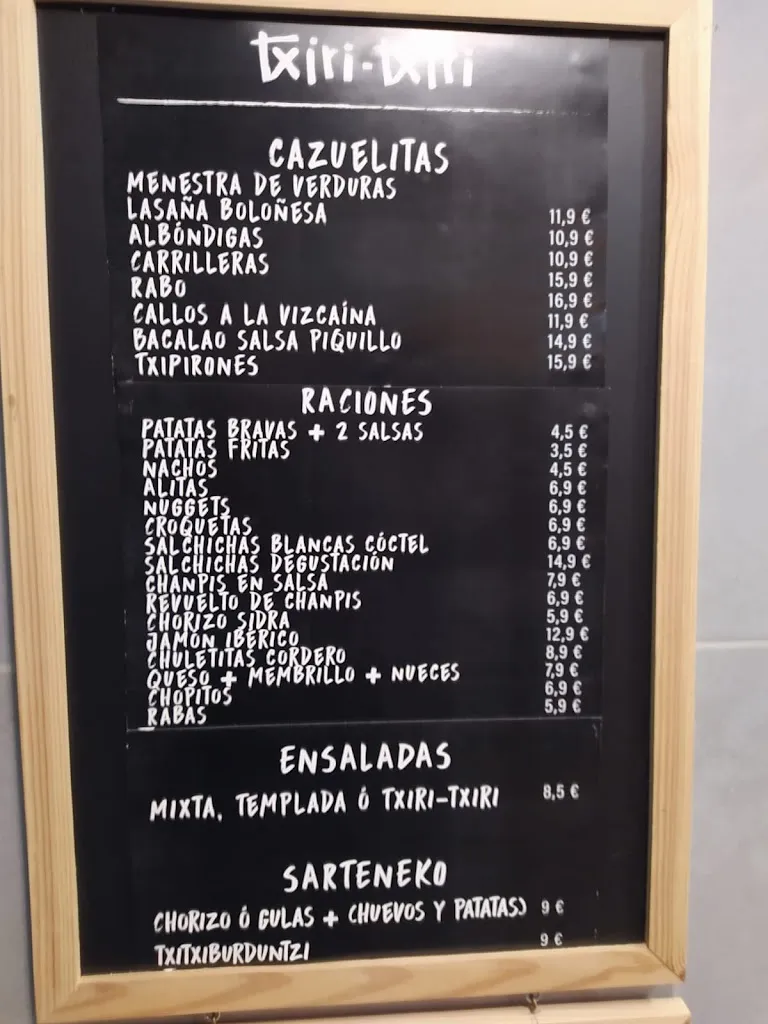 txiri-txiri
CAZUELITAS
MENESTRA DE VERDURAS 11,9 €
LASAÑA BOLOÑESA 10,9 €
ALBÓNDIGAS 10,9 €
CARRILLERAS 15,9 €
RABO 16,9 €
CALLOS A LA VIZCAÍNA 11,9 €
BACALAO SALSA PIQUILLO 14,9 €
TXIPIRONES 15,9 €
RACIONES
PATATAS BRAVAS + 2 SALSAS 4,5 €
PATATAS FRITAS 3,5 €
NACHOS 4,5 €
ALITAS 6,9 €
NUGGETS 6,9 €
CROQUETAS 6,9 €
SALCHICHAS BLANCAS CÓCTEL 6,9 €
SALCHICHAS DEGUSTACIÓN 14,9 €
CHANPIS EN SALSA 7,9 €
REVUELTO DE CHANPIS 6,9 €
CHORIZO SIDRA 5,9 €
JAMÓN IBÉRICO 12,9 €
CHULETITAS CORDERO 8,9 €
QUESO + MEMBRILLO + NUECES 7,9 €
CHOPITOS 6,9 €
RABAS 5,9 €
ENSALADAS
MIXTA, TEMPLADA Ó TXIRI-TXIRI 8,5 €
SARTENEKO
CHORIZO Ó GULAS + (HUEVOS Y PATATAS) 9 €
TXITXIBURDUNTZI 9 €